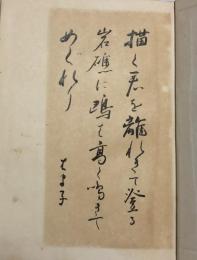 描く君を離れきて登る
岩礁に鴎は高く鳴きて
めぐれり
はま子